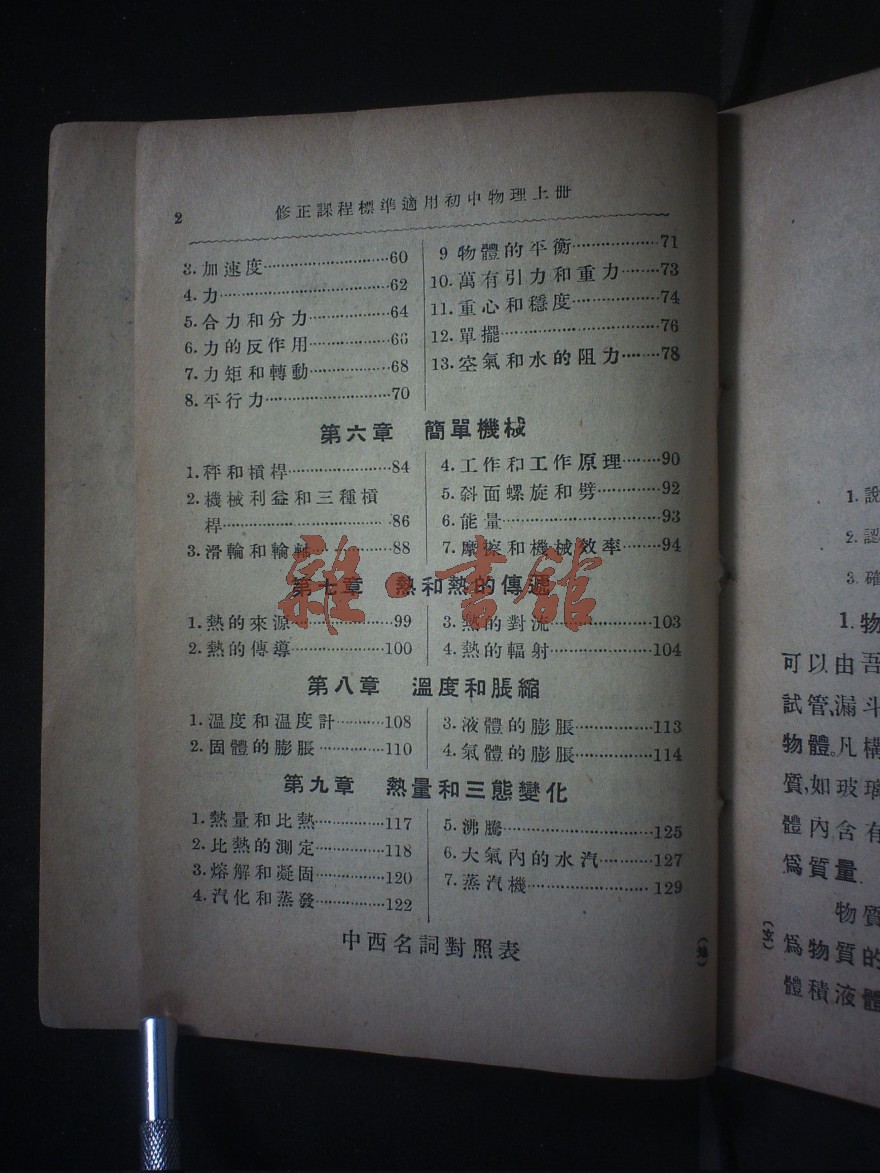 2
修正課程標準適用初中物理上冊
3. 加速度………………60
4. 力………………62
5. 合力和分力………………64
6. 力的反作用………………66
7. 力矩和轉動………………68
8. 平行力………………70
9 物體的平衡………………71
10. 萬有引力和重力………73
11. 重心和穩度………………74
12. 單擺………………76
13. 空氣和水的阻力………78
第六章 簡單機械
1. 秤和槓桿………………84
2. 機械利益和三種槓
桿………………86
3. 滑輪和輪軸………………88
4. 工作和工作原理………90
5. 斜面螺旋和劈………92
6. 能量………………93
7. 摩擦和機械效率………94
第七章 熱和熱的傳遞
1. 熱的來源………………99
2. 熱的傳導………………100
3. 熱的對流………………103
4. 熱的輻射………………104
第八章 溫度和脹縮
1. 溫度和溫度計………108
2. 固體的膨脹………110
3. 液體的膨脹………………113
4. 氣體的膨脹………………114
第九章 熱量和三態變化
1. 熱量和比熱………………117
2. 比熱的測定………………118
3. 熔解和凝固………………120
4. 汽化和蒸發………………122
5. 沸騰………………125
6. 大氣內的水汽………127
7. 蒸汽機………………129
中西名詞對照表
雜·書館
1. 說
2. 認
3. 確
1. 物
可以由吾
試管,漏斗
物體。凡構
質,如玻璃
體內含有
爲質量.
物質
爲物質的
體積,液體